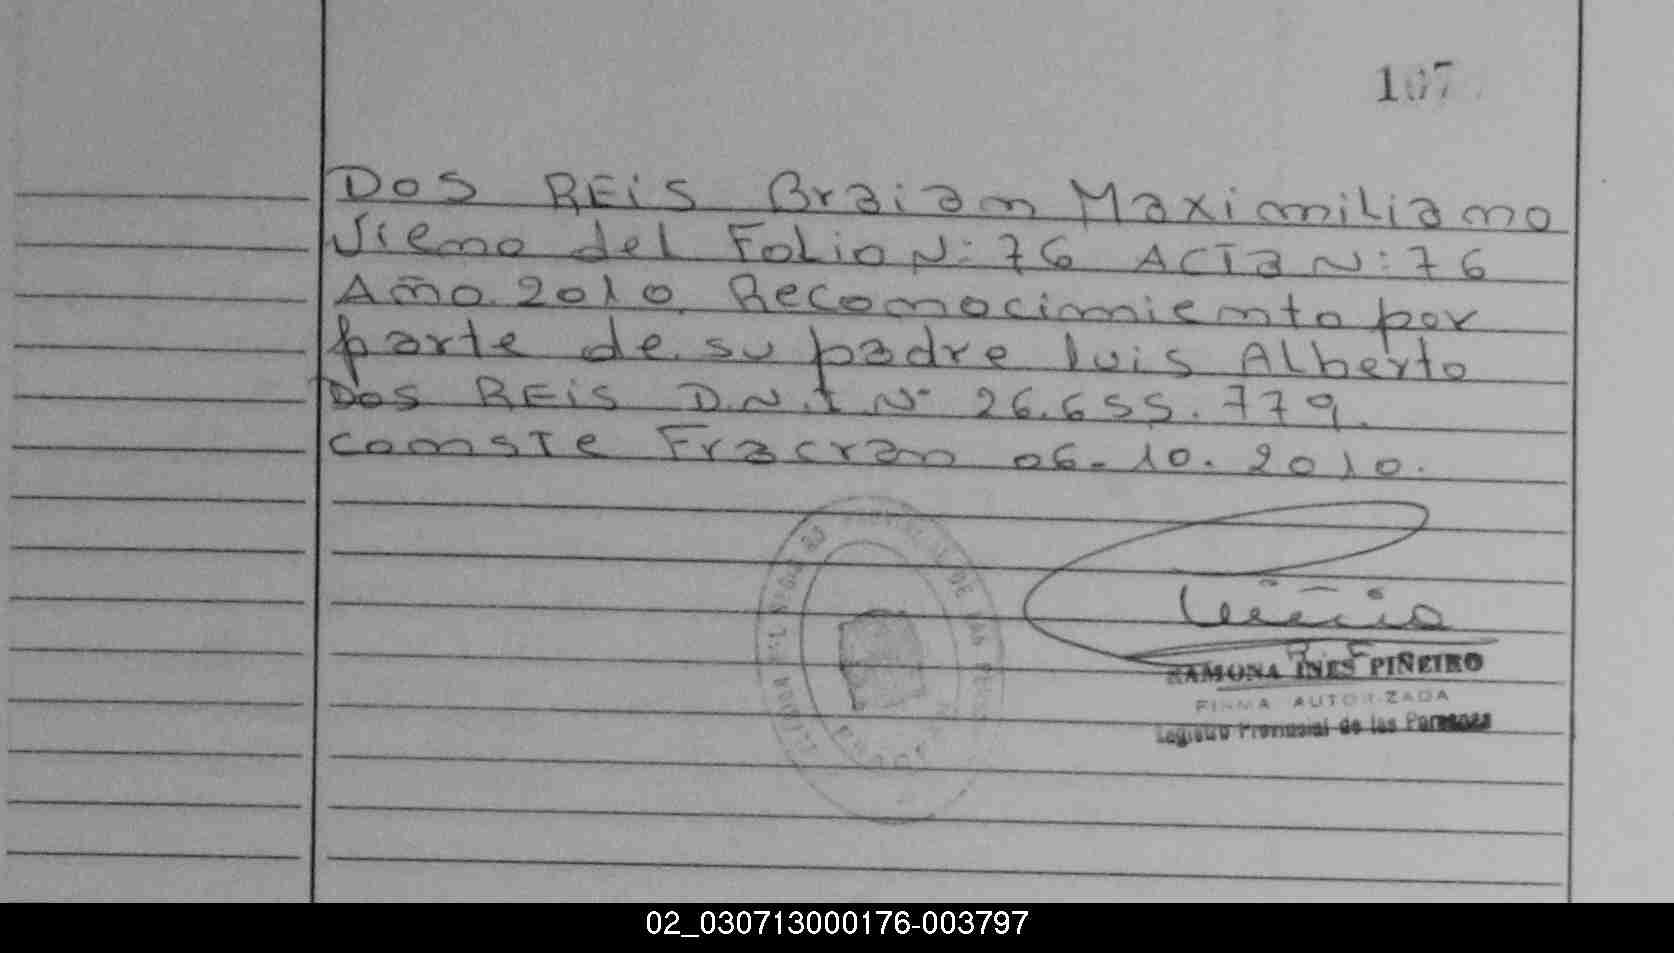 107
DOS REIS Braian Maximiliano
Viene del Folio N: 76 ACTA N: 76
Año. 2010. Reconocimiento por
parte de su padre luis Alberto
DOS REIS D.N.I Nº 26.655.779.
conste Fracran 06-10.2010.
RAMONA INES PIÑEIRO
FIRMA AUTORIZADA
Registro Provincial de las Personas
02_030713000176-003797